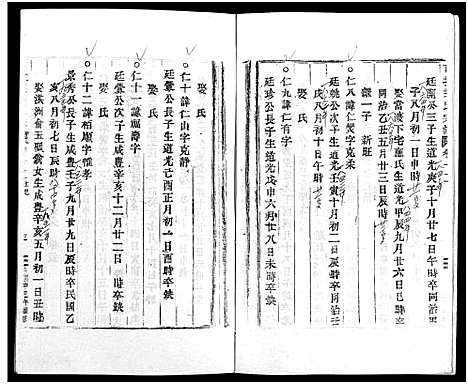 廷蘭公三子生道光庚子十月廿七日午時卒同治
子八月初一日申時
娶當渡下宅施氏生道光甲辰九月廿六日巳時
同治乙丑五月廿三日辰時
繼一子 新旺
○仁八諱仁燮字克柔
廷銚公次子生道光壬寅十月初一日辰時卒同治
戌八月初十日辰時
○仁九諱仁有字
廷珍公長子生道光戊申六月廿八日未時卒缺
娶氏
○仁十諱仁山字克靜
廷彙公長子生道光己酉正月初一日酉時卒缺
娶氏
○仁十一諱福壽字
廷彙公次子生咸豐辛亥十二月廿二日 時卒缺
娶氏
○仁十二諱栢順字惟孝
景秀公長子生咸豐壬子九月廿九日辰時卒民國乙
亥八月初七日辰時
娶溪洲俞玉振翁女生咸豐辛亥五月初一日丑時